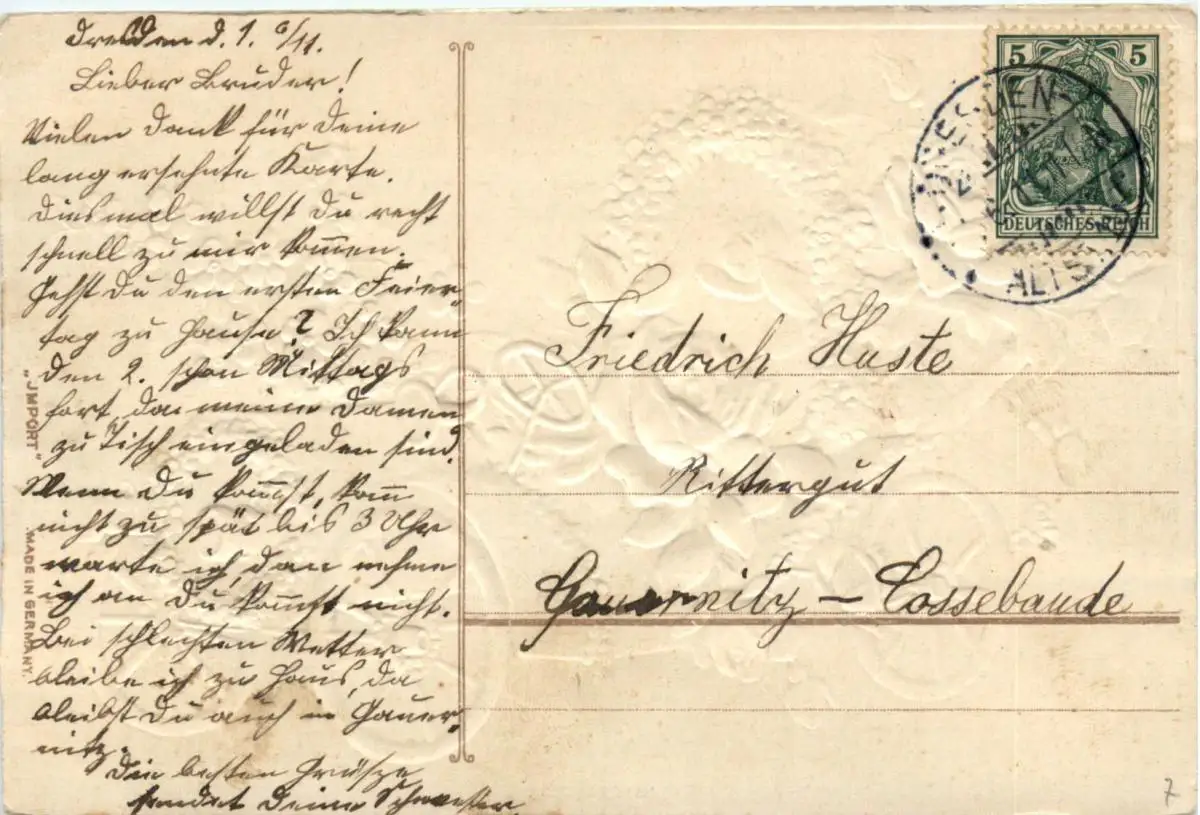 Dresden d. 1. 6/11.
Lieber Bruder!
Vielen Dank für Deine
lang ersehnte Karte.
Diesmal willst Du recht
schnell zu mir kom̄en.
Gehst Du den ersten Feier-
tag zu Hause? Ich kann
den 2. schon Mittags
fort, da meine Damen
zu Tisch eingeladen sind.
Wenn Du kom̄st, kom̄
nicht zu spät bis 3 Uhr
warte ich, dan nehme
ich an Du kom̄st nicht.
Bei schlechten Wetter
bleibe ich zu Haus, da
bleibst Du auch in Gauer-
nitz.
Die besten Grüsze
sendet Deine Schwester
"IMPORT"
MADE IN GERMANY.
5 5
DEUTSCHES REICH
DRESDEN-
ALTST.
Friedrich Haste
Rittergut
Gauernitz – Cossebaude
7